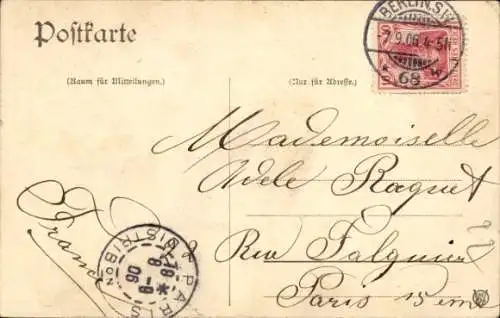 Postkarte
(Raum für Mitteilungen.)
(Nur für Adresse.)
BERLIN.S.W.
-7.9.06.4-5N.
* 68 *
Mademoiselle
Adele Raguet
Rue Falguier
Paris 15 eme
France
PARIS
DISTRIBON